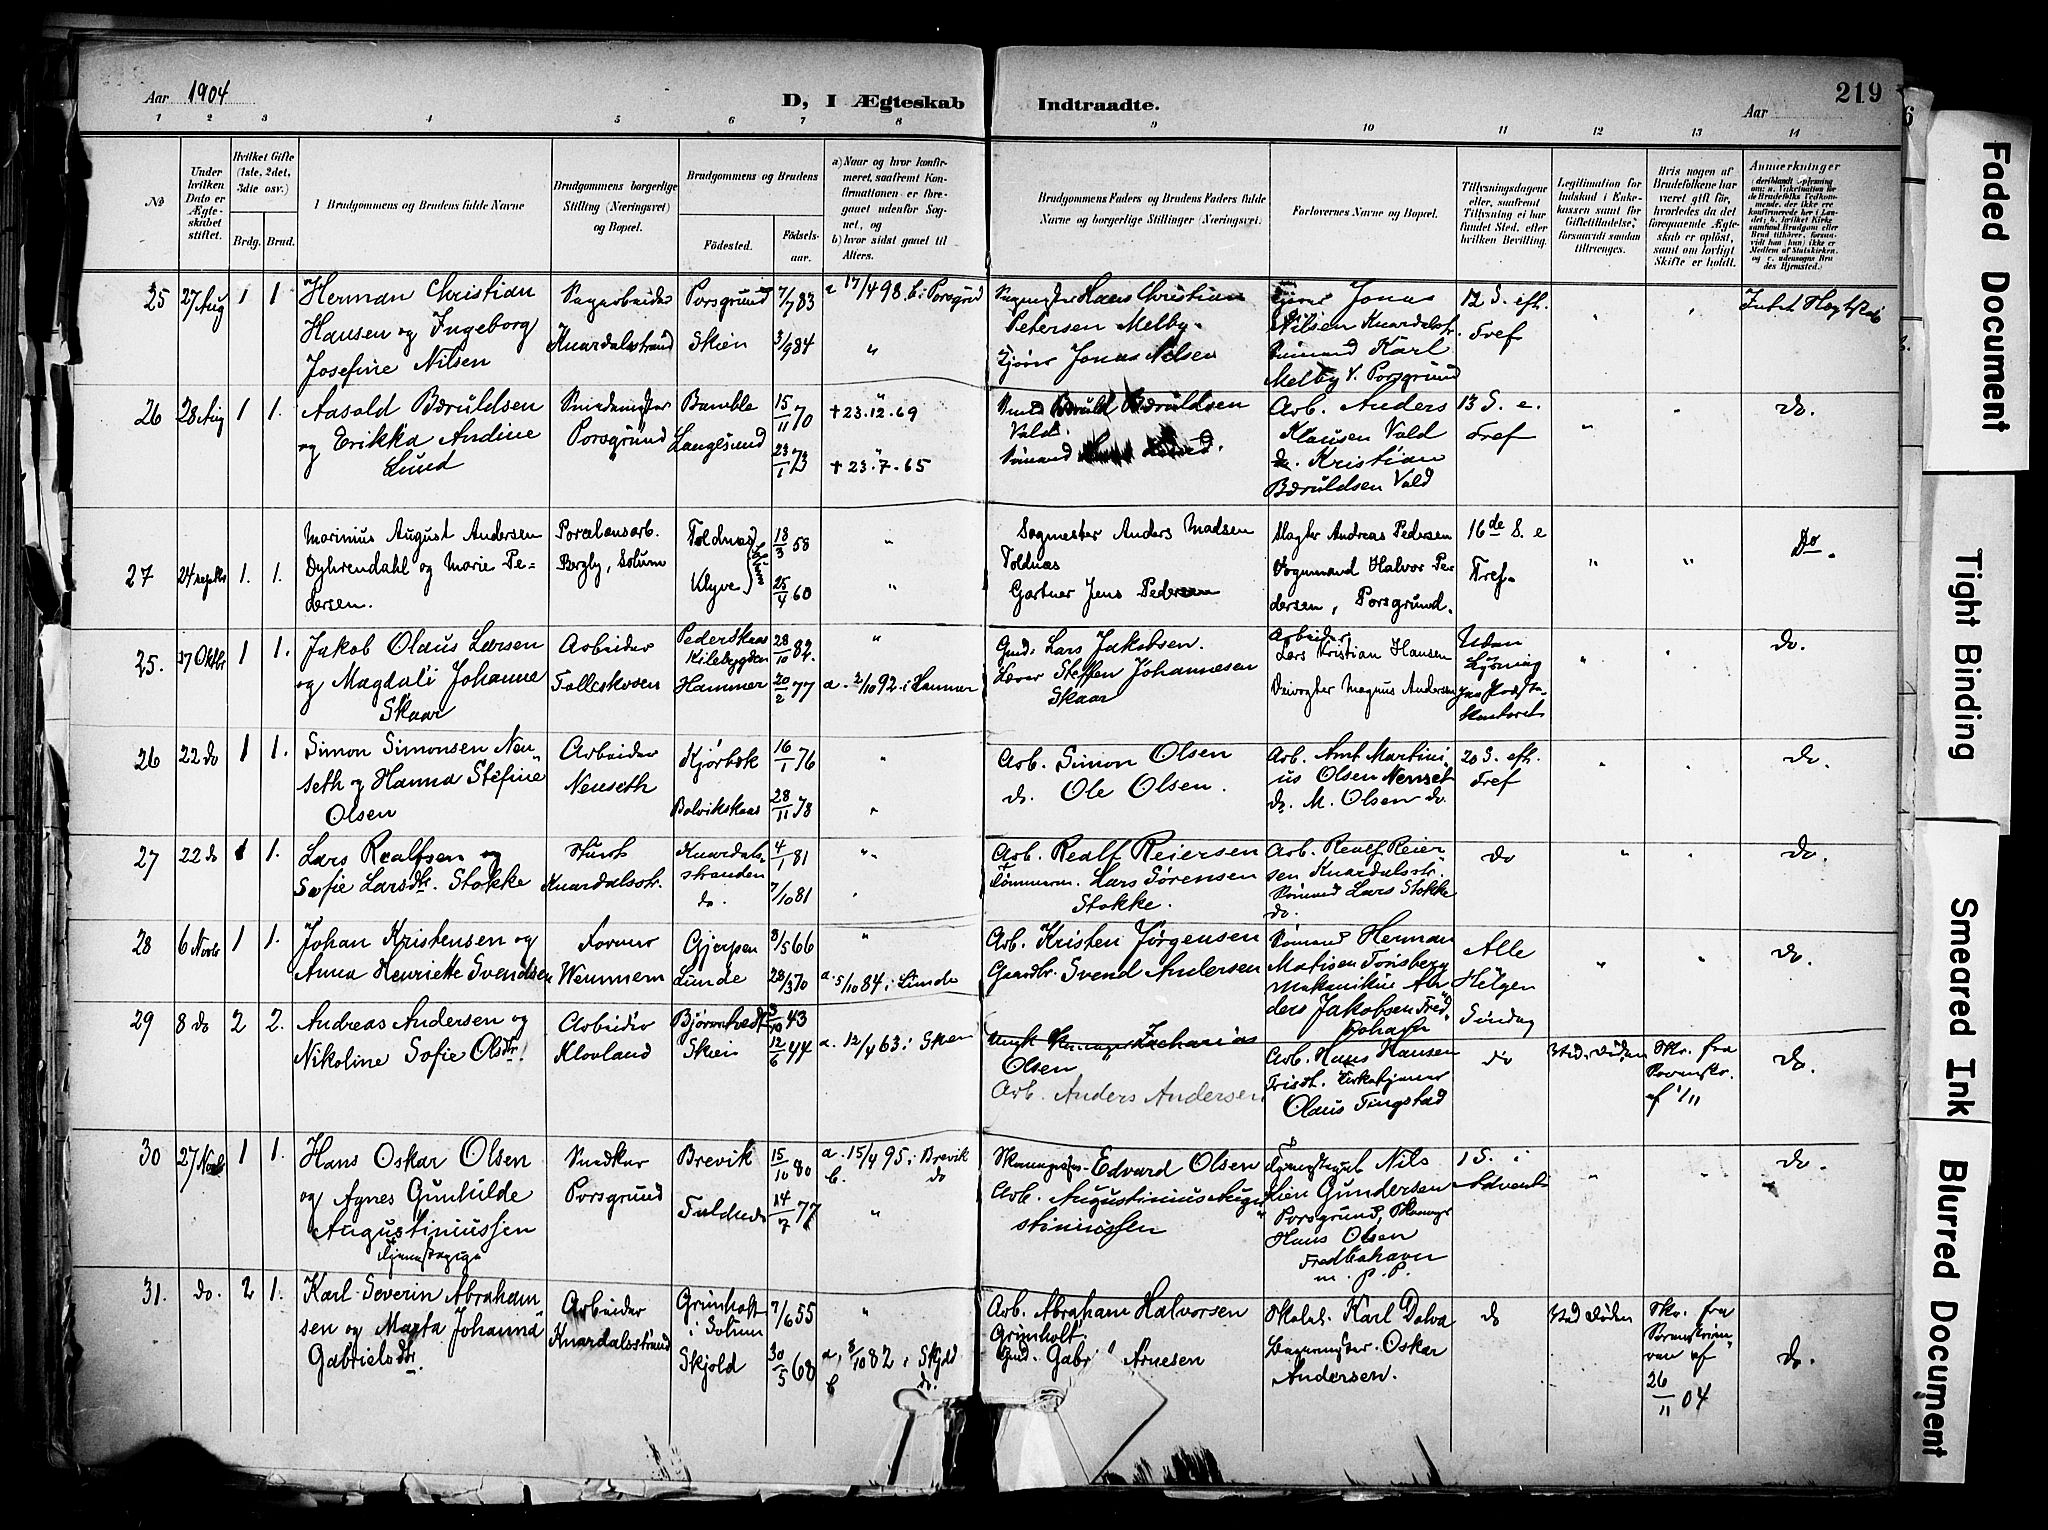 Aar 1904
D, I Ægteskab Indtraadte.
Aar
219
1 2 3 4 5 6 7 8 9 10 11 12 13 14
No
Under hvilken Dato er Ægteskabet stiftet.
Hvilket Gifte (1ste, 2det, 3die osv.)
Brdg. Brud.
Brudgommens og Brudens fulde Navne
Brudgommens borgerlige Stilling (Næringsvei) og Bopæl.
Brudgommens og Brudens
Födested. Födselsaar.
a) Naar og hvor konfirmeret, saafremt Konfirmationen er foregaaet udenfor Sognet, og
b) hvor sidst gaaet til Alters.
Brudgommens Faders og Brudens Faders fulde Navne og borgerlige Stillinger (Næringsvei)
Forlovernes Navne og Bopæl.
Tillysningsdagene eller, saafremt Tillysning ei har fundet Sted, efter hvilken Bevilling.
Legitimation for Indskud i Enkekassen samt for Giftetilladelse, forsaavidt saadan tiltrænges.
Hvis nogen af Brudefolkene har været gift før, hvorledes da det foregaaende Ægteskab er oplöst, samt om lovligt Skifte er holdt.
Anmærkninger
25 27 Aug 1 1 Herman Christian
Hansen og Ingeborg
Josefine Nilsen
Sagarbeider
Knardalsstrand
Porsgrund 7/7 83
Skien 3/9 84
a 17/4 98 b. i Porsgrd
"
Hans Christian
Petersen Melby.
Jonas Nilsen
Jonas
Nilsen Knardalsstr.
Sømand Karl
Melby v. Porsgrund
12 S. eft.
Tref
26 28 Aug 1 1. Aasold Bæruldsen
og Erikka Andine
Lund
Porsgrund
Bamble 15/11 70
Langesund 23/1 73
+ 23.12.69
+ 23.7.65
Bæruld Bæruldsen
Vald.
Sømand
Arb. Anders
Klausen Vald
do. Kristian
Bæruldsen Vald
13 S. e.
Tref
do.
27 24 septbr 1. 1. Marinius August Andersen
Dyhrendahl og Marie Pedersen.
Porcelænsarb.
Borgby, Solum
Toldnæs 18/3 58
Klyve 25/4 60
Solum
Sagmester Anders Madsen
Toldnæs
Gartner Jens Pedersen
Slagter Andreas Pedersen
Sagmand Halvor Pedersen, Porsgrund.
16de S. e
Tref.
Do.
25. 17 Oktbr 1 1. Jakob Olaus Larsen
og Magdali Johanne
Skaar
Arbeider
Falleskosen
Pederskaas
Kilebygden 28/10 82.
Hammer 20/2 77
a. 2/10 92 i Hammer
Gmd. Lars Jakobsen.
Lærer Steffen Johannesen
Skaar
Arbeider
Lars Kristian Hansen
Veivogter Magnus Andersen
Uden
Lysning
do.
26 22 do 1 1. Simon Simonsen Nenseth og Hanna Stefine
Olsen
Arbeider
Nenseth
Kjørbæk 16/1 76
Bolvikskaas 28/11 78
Arb. Simon Olsen
do. Ole Olsen.
Arb. Amt Martinius Olsen Nenset
do. M. Olsen do
20 S. eft.
Tref
do.
27 22 do 1 1. Lars Realfsen og
Sofie Larsdtr. Stokke
Knardalsstr.
Knardalsstranden 4/1 81
do. 7/10 81
Arb. Realf Reiersen
Tømmerm. Lars Sørensen
Stokke.
Arb. Realf Reiersen Knardalsstr.
Sømand Lars Stokke
do.
do
do.
28 6 Novb 1 1. Johan Kristensen og
Anna Henriette Svendsen
Former
Wemmem
Gjerpen 8/5 66
Lunde 28/3 70
a. 5/10 84 i Lunde
Arb. Kristen Jørgensen
Gaardbr. Svend Andersen
Sømand Herman
Matisen Torisberg
Mekanikus Anders Jakobsen
Alle
Helgen
Søndag
do.
29 8 do 2 2. Andreas Andersen og
Nikoline Sofie Olsdtr.
Arbeider
Klovland
Bjørntvedt 3/10 43
Skien 12/6 44
a. 12/4 63 i Skien
Zacharias
Olsen
Arb. Anders Andersen
Arb. Hans Hansen
Kirketjener
Olaus Tingstad
do
Ved Døden
Skr. fra
af 1/11
do.
30 27 Novb 1 1. Hans Oskar Olsen
og Agnes Gunhilde
Augustiniussen
Snedker
Porsgrund
Brevik 15/10 80
14/7 77
a. 15/4 95 i Brevik
b. do
Edvard Olsen
Arb. Augustinius Augustiniussen
Nils
Gundersen
Porsgrund,
Hans Olsen
m. p. P.
1 S. i
Advent
do.
31. do. 2 1. Karl Severin Abrahamsen og Marta Johanna
Gabrielsdtr.
Arbeider
Knardalsstrand
Grimholt
i Solum 7/6 55
Skjold 30/5 68
a. 8/10 82 i Skjold
b do.
Arb. Abraham Halvorsen
Grimholt.
Gmd. Arnesen
Karl Dalva
Bagermester Oskar
Andersen.
do
Ved Døden
Skr. fra
af
26/11 04
do.
Faded Document
Tight Binding
Smeared Ink
Blurred Document